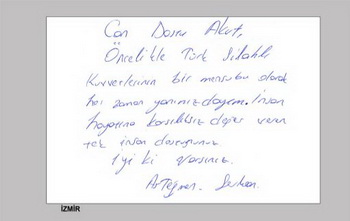 Can Dostu Akut,
Öncelikle Türk Silahlı
Kuvvetlerinin bir mensubu olarak
her zaman yanınızdayım. İnsan
hayatına karşılıksız değer veren
tek insan dostusunuz
İyi ki varsınız.
Asteğmen.
İZMİR